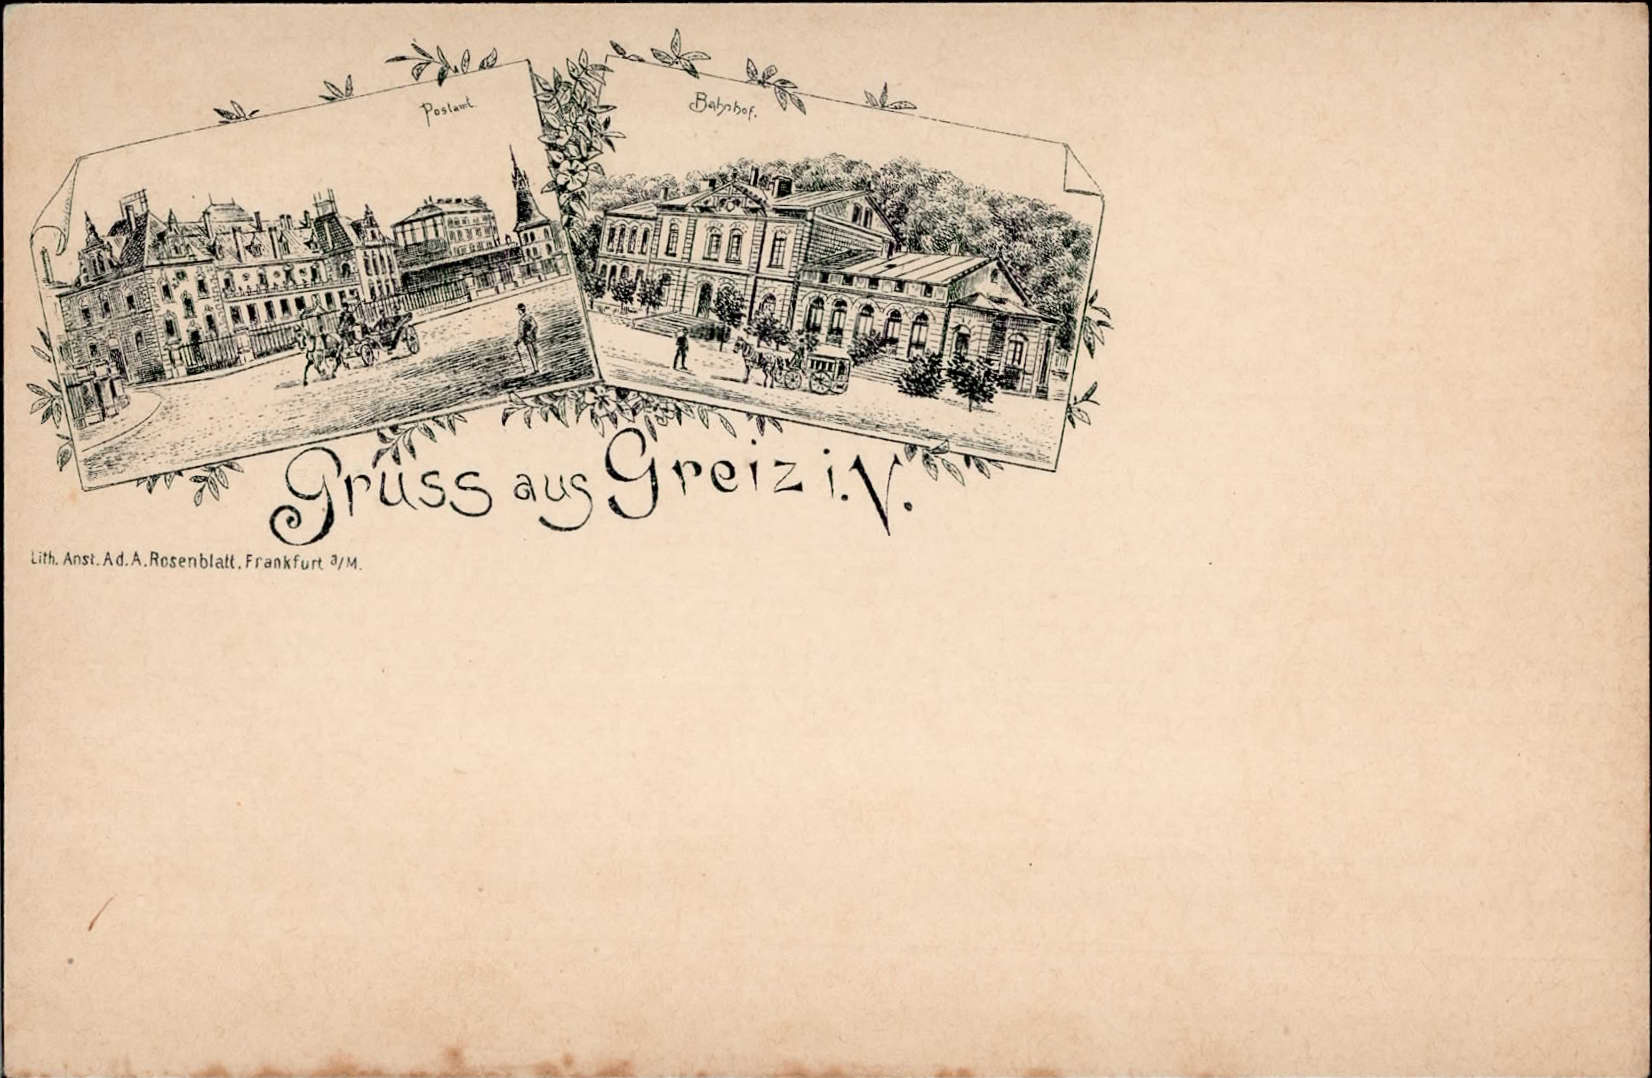 Postamt
Bahnhof.
Gruss aus Greiz i. V.
Lith. Anst. Ad. A. Rosenblatt, Frankfurt a/M.